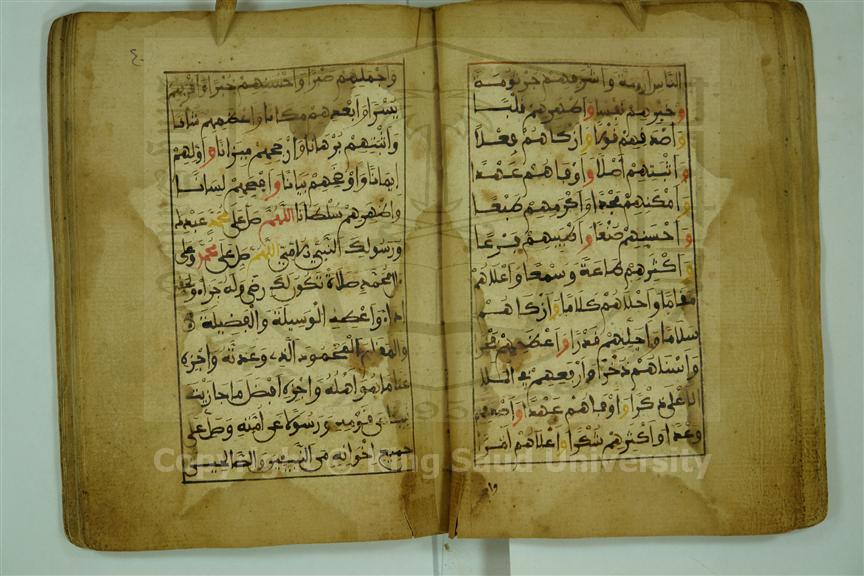 الناس ارومة واشرفهم جرثومة
وخيرهم نفسا واطهرهم قلبا
واصدقهم قولا وازكاهم فعلا
واثبتهم اصلا واوفاهم عهدا
وامكنهم مجدا واكرمهم طبعا
واحسنهم صنعا واطيبهم فرعا
واكثرهم طاعة وسمعا واعلاهم
مقاما واحلاهم كلاما وازكاهم
سلاما واجلهم قدرا واعظمهم فخرا
واسناهم ذخرا وارفعهم في الملا
الاعلى ذكرا واوفاهم عهدا واصدقهم
وعدا واكثرهم شكرا واعلاهم امرا
وا
٤٠
واجملهم صبرا واحسنهم خيرا واقربهم
يسرا وابعدهم مكانا واعظمهم شانا
واثبتهم برهانا وارجحهم ميزانا واولهم
ايمانا واوضحهم بيانا وافصحهم لسانا
واظهرهم سلطانا اللهم صل على محمد عبدك
ورسولك النبي الامي اللهم صل على محمد وعلى
ال محمد صلاة تكون لك رضى وله جزاء ولحقه
اداء واعطه الوسيلة والفضيلة
والمقام المحمود الذي وعدته واجزه
عنا ما هو اهله واجزه افضل ما جازيت
نبيا عن قومه ورسولا عن امته وصل على
جميع اخوانه من النبيين والصالحين
Copyright © King Saud University